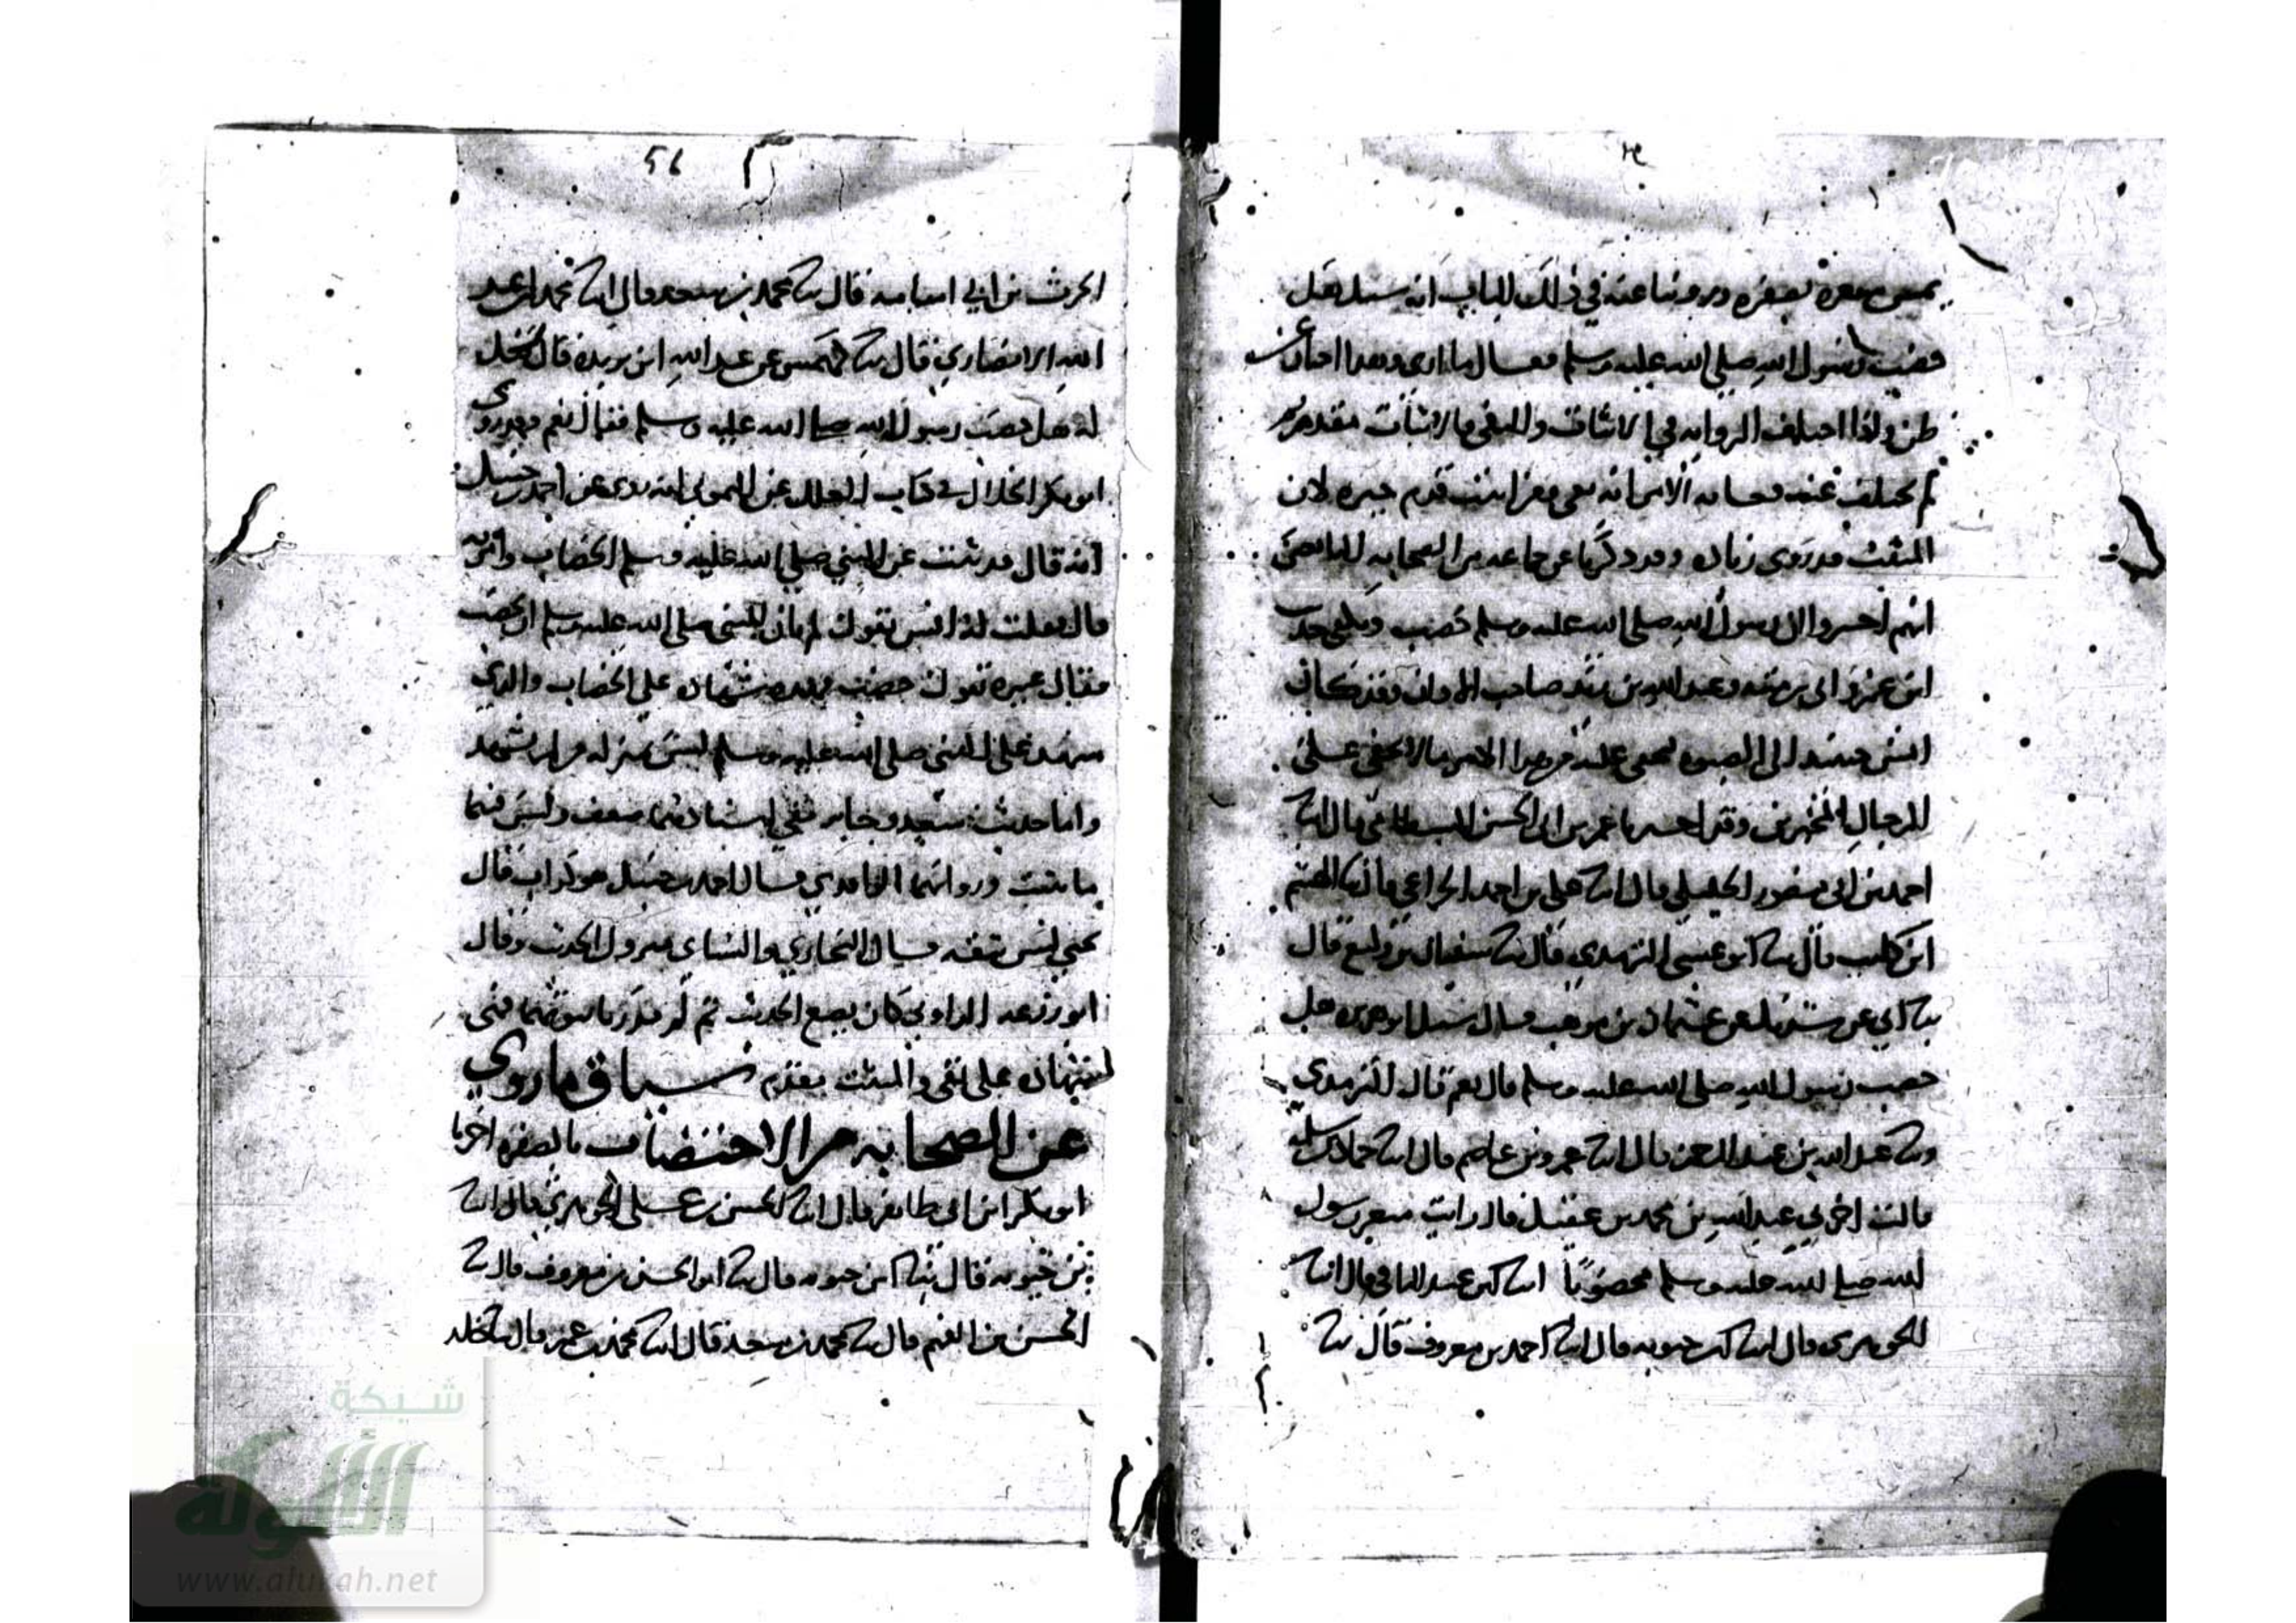 يمس بصفره بصفره وروينا عنه في ذلك الباب انه سئل هل
خضب رسول الله صلى الله عليه وسلم فقال ما ارى وهذا اخبار عن
ظن واذا اختلف الرواية في الاثبات والنفي فالاثبات مقدم
لم يختلف عنه الامر انه نفى وغيره اثبت قدم خبره لان
المثبت قد روى زيادة وقد ذكرنا عن جماعة من الصحابة
انهم اخبروا ان رسول الله صلى الله عليه وسلم خضب ويكفي حديث
ابن عمر وابي رمثة وعبد الله بن زيد صاحب الاذان وقد كان
انس
للرجال المخبرين وقد اخبرنا عمر بن ابي الحسن البسطامي قال انا
احمد بن ابي منصور الخليلي قال انا علي بن احمد الخزاعي قال نا الهيثم
ابن كليب قال نا ابو عيسى الترمذي قال نا سفيان بن وكيع قال
نا ابي عن شريك عن عثمان بن موهب قال سئل ابو هريره هل
خضب رسول الله صلى الله عليه وسلم قال نعم قال الترمذي
ونا عبد الله بن عبد الرحمن قال انا عمرو بن عاصم قال انا حماد بن سلمه
قال اخبرني عبد الله بن محمد بن عقيل قال رايت شعر رسول
الله صلى الله عليه وسلم مخضوبا انا ابن عبد الباقي قال انا
الجوهري قال انا ابن حيويه قال انا احمد بن معروف قال نا
56
الحرث بن ابي اسامه قال نا محمد بن سعد قال انا محمد بن عبد
الله الانصاري قال نا كهمس عن عبد الله ابن بريده قال
له هل خضب رسول الله صلى الله عليه وسلم فقال نعم وقد روى
ابو بكر الخلال في كتاب العلل عن الميموني انه روى عن احمد بن حنبل
انه قال قد ثبت عن النبي صلى الله عليه وسلم الخضاب
قال فقلت له انس يقول لم يكن النبي صلى الله عليه وسلم
فقال غيره يقول خضب فهذه شهادة على الخضاب والذي
شهد على النبي صلى الله عليه وسلم ليس بمنزله من لم يشهد
واما حديث سعيد وجابر ففي اسنادهما ضعف وليس فيهما
ما يثبت ورواتهما الواقدي قال احمد بن حنبل هو كذاب قال
يحيى ليس بثقه قال البخاري والنسائي متروك الحديث وقال
ابو زرعه الرازي كان يضع الحديث ثم لو قدرنا ثبوتهما فهي
شهادة على نفي والمثبت يقدم سياق ما روي
عن الصحابه من الاختضاب بالصفره اخبرنا
ابو بكر ابن ابي طاهر قال انا الحسن بن علي الجوهري قال انا
ابن حيويه قال نا ابو الحسن بن معروف قال نا
الحسن بن الفهم قال نا محمد بن سعد قال انا محمد بن عمر قال نا خالد
شبكة
الألوكة
www.alukah.net